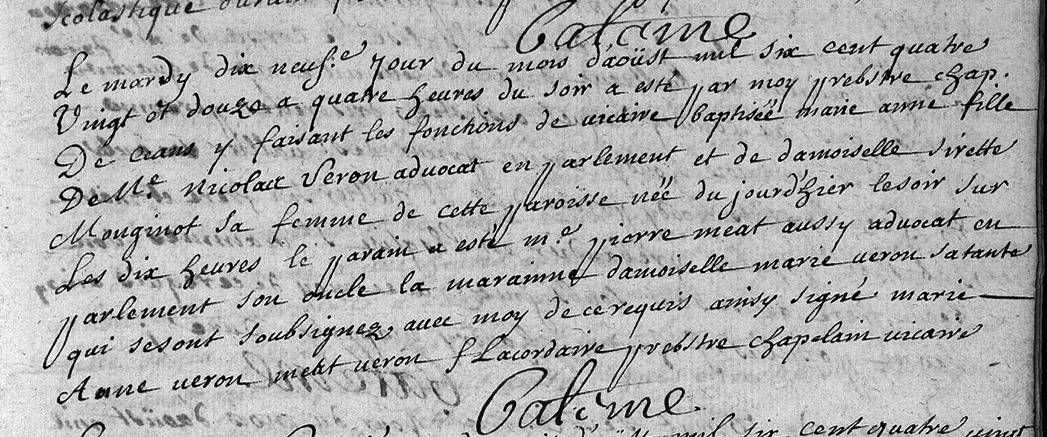 scolastique
Batême
Le mardy dix neuf.e jour du mois d'aoüst mil six cent quatre
Vingt et douze a quatre heures du soir a esté par moy prebstre chap.
De ceans y faisant les fonctions de vicaire baptiseë marie anne fille
De Me Nicolas Veron advocat en parlement et de damoiselle sirette
Mouginot sa femme de cette paroisse neë du jourd'hier le soir sur
Les dix heures le parain a esté me pierre meat aussy advocat en
parlement son oncle la marainne damoiselle marie veron sa tante
qui se sont soubsignez avec moy de ce requis ainsy signé marie
Anne veron meat veron f Lacordaire prebstre chapelain vicaire
Batême
six cent quatre vingt